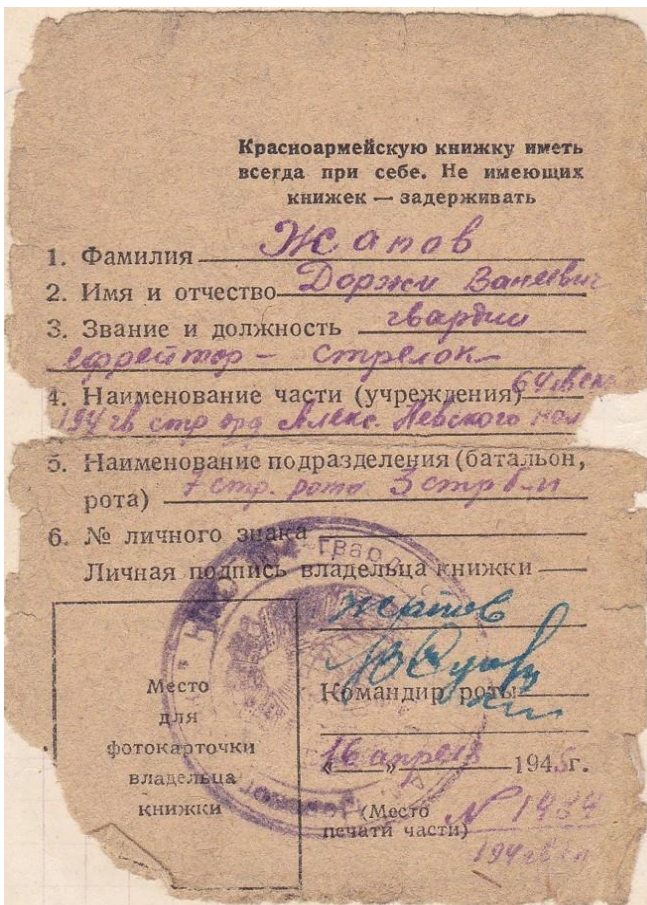 Красноармейскую книжку иметь
всегда при себе. Не имеющих
книжек — задерживать
1. Фамилия Жапов
2. Имя и отчество Доржи
3. Звание и должность гвардии
ефрейтор – стрелок
4. Наименование части (учреждения)
194 гв стр орд Алекс. Невского пол
5. Наименование подразделения (батальон,
рота) 7 стр. рота 3 стр б-н
6. № личного знака
Личная подпись владельца книжки
Жапов
Командир роты
Место
для
фотокарточки
владельца
книжки
"16" апреля 1945г.
(Место
печати части)
N 1484
194 гв сп